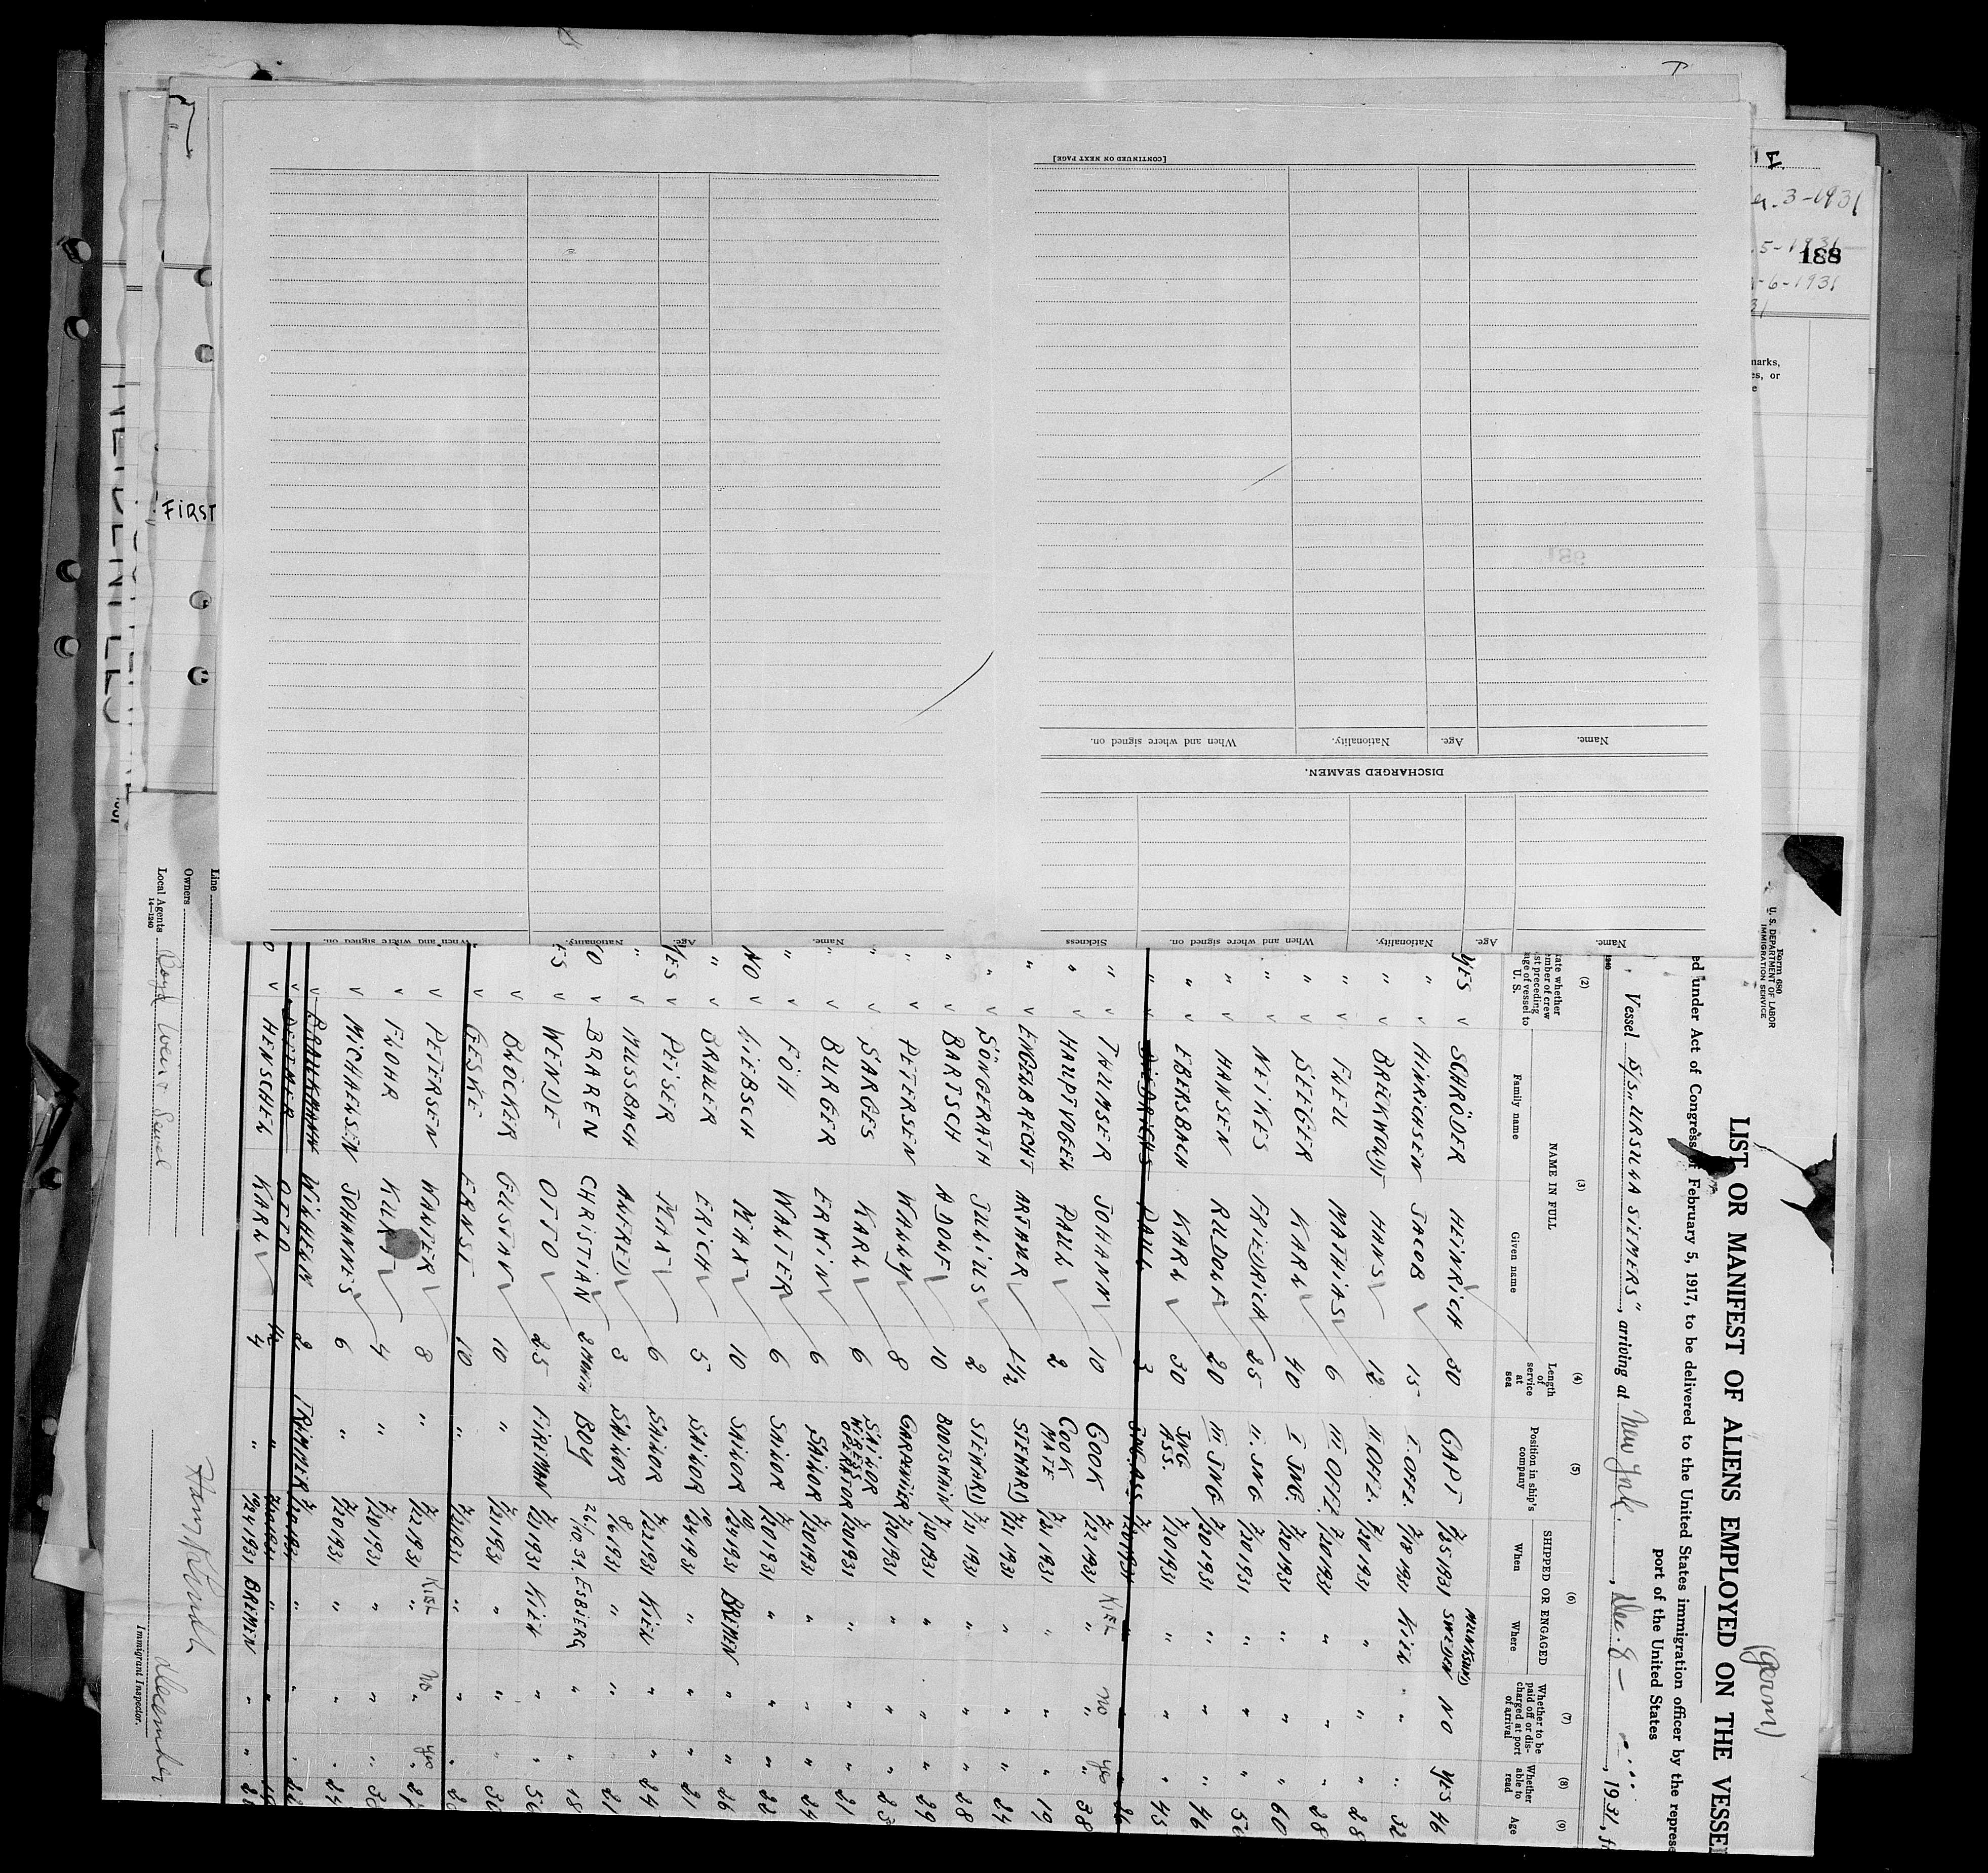 Form 680
U. S. DEPARTMENT OF LABOR
IMMIGRATION SERVICE
(Germ)
LIST OR MANIFEST OF ALIENS EMPLOYED ON THE VESSEL
ed under Act of Congress of February 5, 1917, to be delivered to the United States immigration officer by the represe
port of the United States
Vessel S/S. "URSULA SIEMERS", arriving at New York, Dec. 8 –, 1931, f
(2) (3) (4) (5) (6) (7) (8) (9)
NAME IN FULL
SHIPPED OR ENGAGED
ate whether
ember of crew
st preceding
age of vessel to
U. S.
Family name
Given name
Length of service at sea
Position in ship's company
When
Where
Whether to be paid off or discharged at port of arrival
Whether able to read
Age
YES v SCHRÖDER HEINRICH 30 CAPT 7/25 1931 MUNKSUND SWEDEN NO YES 46
" v HINRICHSEN JACOB 15 I. OFFZ. 7/18 1931 KIEL " " 32
v BRECKWOLDT HANS 12 II. OFFZ. 7/20 1931 " " 28
" v FLEU MATHIAS 6 III OFFZ. 7/20 1931 " " 28
" v SEEGER KARL 40 I ING. 7/20 1931 " " 60
" v NEIKES FRIEDRICH 25 II. ING 7/20 1931 " "
" v HANSEN RUDOLF 20 III ING. 7/20 1931 " " 46
" v EBERSBACH KARL 30 ING ASS. 7/20 1931 " " 45
" v DIEDRICHS PAUL 3 ING. ASS 7/20 1931 "
" v THUMSER JOHANN 10 COOK 7/22 1931 KIEL no yes 38
" v HAUPTVOGEL PAUL 2 COOK MATE 7/21 1931 " " 19
" v ENGELBRECHT ARTHUR 1 1/2 STEWARD 7/21 1931 " " 24
" v SÖNGERATH JULIUS 2 STEWARD 7/21 1931 " " 28
" v BARTSCH ADOLF 10 BOOTSMAN 7/20 1931 " " 29
" v PETERSEN WILLY 8 CARPENTER 7/20 1931 " " 23
" v SARGES KARL 6 SAILOR WIRELESS OPERATOR 7/20 1931 " " 21
" v BURGER ERWIN 6 SAILOR 7/20 1931 " " 24
" v FÖH WALTER 6 SAILOR 7/20 1931 " " 22
NO v LIEBSCH MAX 10 SAILOR 10/24 1931 BREMEN " " 26
" v BRAUER ERICH 5 SAILOR 10/24 1931 " " 21
YES v PEISER MAX 6 SAILOR 7/22 1931 KIEL " " 24
" v MUSSBACH ALFRED 3 SAILOR 8/6 1931 " " 21
v BRAREN CHRISTIAN 2 MONTH BOY 26/10. 31. ESBJERG " " 18
ES v WENDE OTTO 25 FIREMAN 7/21 1931 KIEL "
v BLÖCKER GUSTAV 10 " 7/21 1931 " "
v GESKE ERNST 10 " 7/21 1931 " "
v PETERSEN WALTER 8 " 7/22 1931 KIEL no yes
v FLOHR KURT 4 " 7/20 1931 " "
v MICHAELSEN JOHANNES 6 " 7/20 1931 " " 24
v BRAUKMANN WILHELM 2 TRIMMER 7/20 1931 " "
v OTTO 1/2 " 1931 "
v HENSCHEL KARL 4 " 10/24 1931 BREMEN " "
Line
Owners
Local Agents Boyd Weir & Sewel
14—1240
December
Immigrant Inspector.
[CONTINUED ON NEXT PAGE]
Name. Age. Nationality. When and where signed on.
DISCHARGED SEAMEN.
Name. Age. Nationality. When and where signed on. Sickness
Name. Age. Nationality. When and where signed on.
3-1931
5-1931
188
-6-1931
31
marks,
es, or
e
FIRST